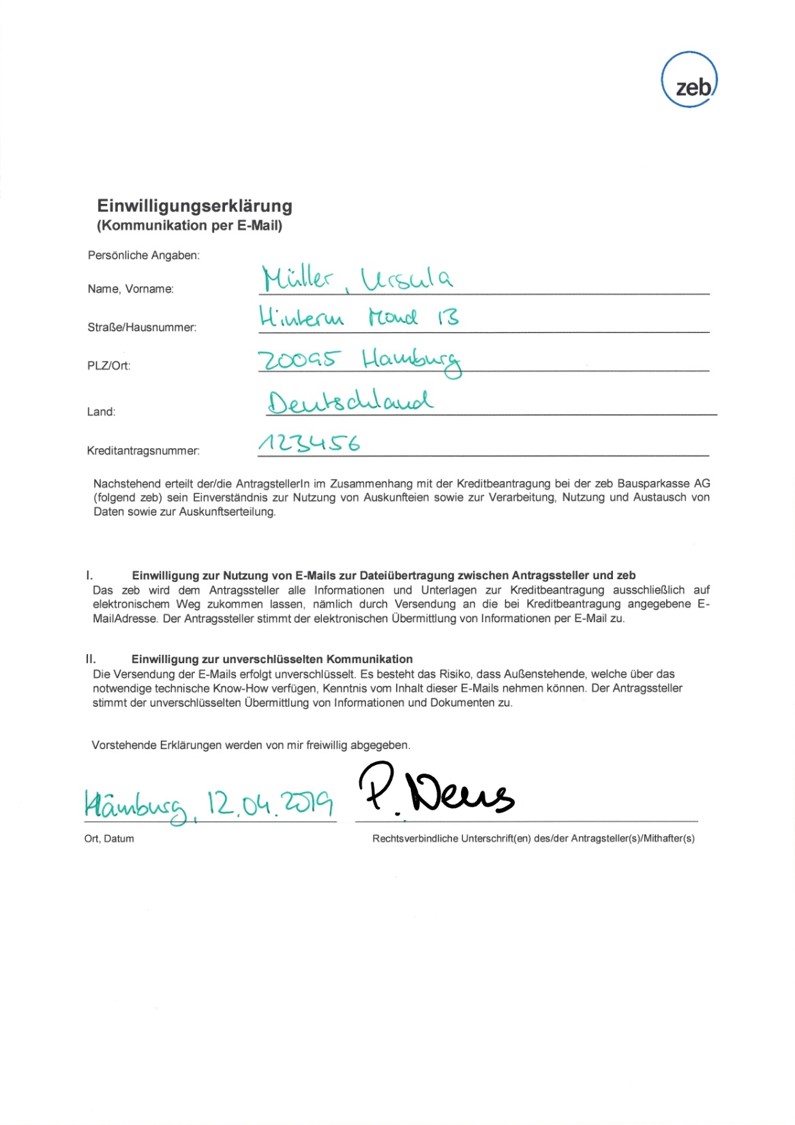 zeb
Einwilligungserklärung
(Kommunikation per E-Mail)
Persönliche Angaben:
Name, Vorname: Müller, Ursula
Straße/Hausnummer: Hinterm Mond 13
PLZ/Ort: 20095 Hamburg
Land: Deutschland
Kreditantragsnummer: 123456
Nachstehend erteilt der/die AntragstellerIn im Zusammenhang mit der Kreditbeantragung bei der zeb Bausparkasse AG
(folgend zeb) sein Einverständnis zur Nutzung von Auskunfteien sowie zur Verarbeitung, Nutzung und Austausch von
Daten sowie zur Auskunftserteilung.
I. Einwilligung zur Nutzung von E-Mails zur Dateiübertragung zwischen Antragssteller und zeb
Das zeb wird dem Antragsteller alle Informationen und Unterlagen zur Kreditbeantragung ausschließlich auf
elektronischem Weg zukommen lassen, nämlich durch Versendung an die bei Kreditbeantragung angegebene E-
MailAdresse. Der Antragsteller stimmt der elektronischen Übermittlung von Informationen per E-Mail zu.
II. Einwilligung zur unverschlüsselten Kommunikation
Die Versendung der E-Mails erfolgt unverschlüsselt. Es besteht das Risiko, dass Außenstehende, welche über das
notwendige technische Know-How verfügen, Kenntnis vom Inhalt dieser E-Mails nehmen können. Der Antragssteller
stimmt der unverschlüsselten Übermittlung von Informationen und Dokumenten zu.
Vorstehende Erklärungen werden von mir freiwillig abgegeben.
Hamburg, 12.04.2019 P.
Ort, Datum Rechtsverbindliche Unterschrift(en) des/der Antragsteller(s)/Mithafter(s)